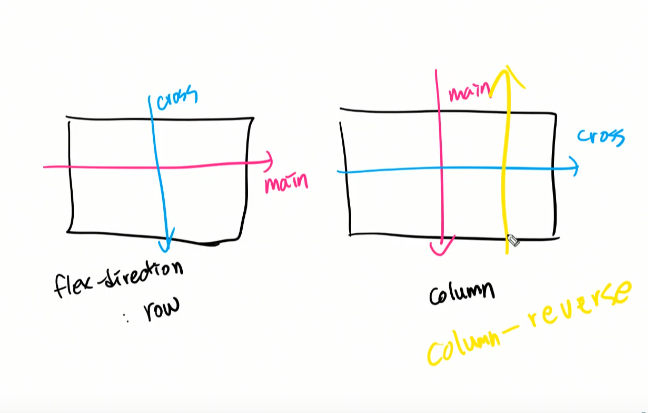 cross
main
flex-direction
: row
main
cross
column
column-reverse